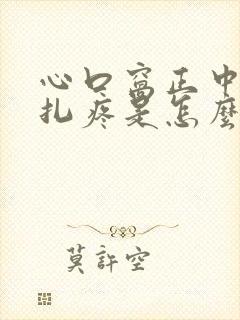 心口窩正中
扎疼是怎麼
莫許空